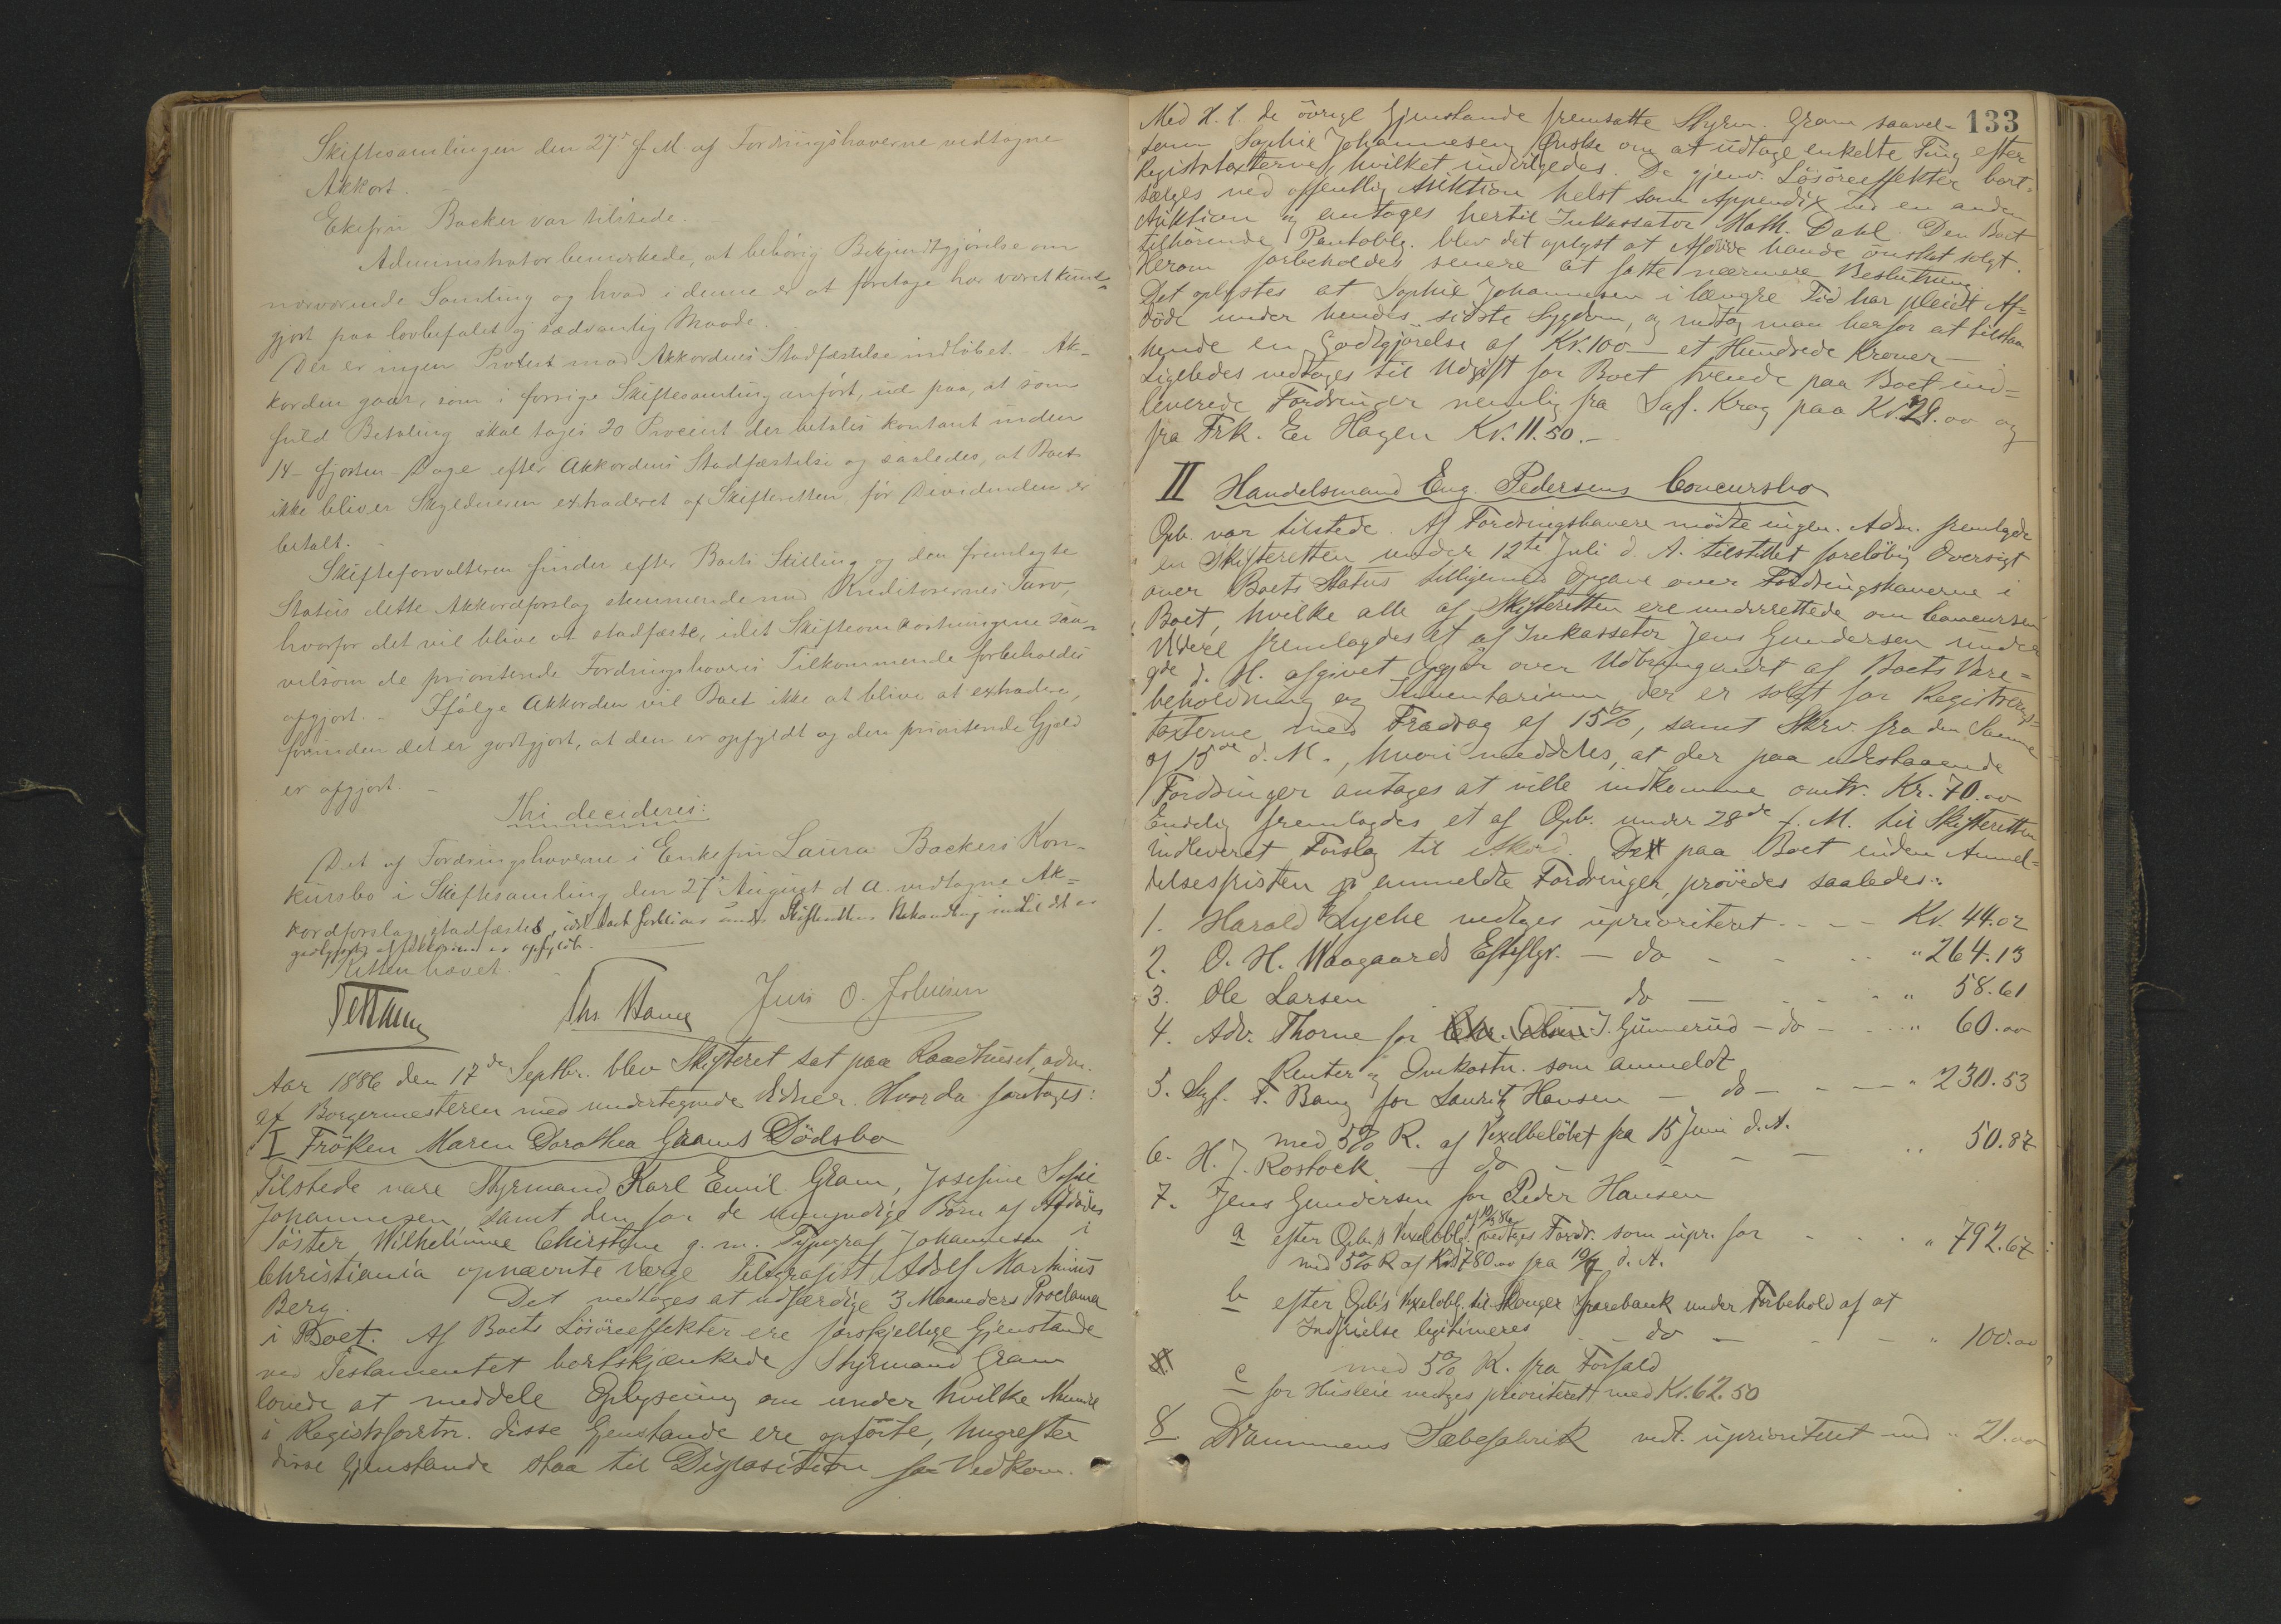 Skiftesamlingen den 27de f. M. af Fordringshaverne vedtagne
Akkort. –
Enkefru Backer var tilstede. –
Administrator bemærkede, at behørig Bekjendtgjørelse om
nærværende Samling og hvad i denne er at foretage har været kund-
gjort paa lovbefalet og sædvanlig Maade.
Der er ingen Protest mod Akkordens Stadfæstelse indløbet. – Ak-
korden gaar, som i forrige Skiftesamling anført, ud paa, at som
fuld Betaling skal tages 20 Procent der betales kontant inden
14 – fjorten – Dage efter Akkordens Stadfæstelse og saaledes, at Boet
ikke bliver Skyldneren extraderet af Skifteretten før Dividenden er
betalt. –
Skifteforvalteren finder efter Boets Stilling og den fremlagte
Status dette Akkordforslag stemmende med Kreditorernes Tarv,
hvorfor det vil blive at stadfæste, idet Skifteomkostningerne saa-
velsom de prioriterede Fordringshaveres Tilkommende forbeholdes
afgjort. – Ifølge Akkorden vil Boet ikke at blive at extradere,
forinden det er godtgjort, at den er opfyldt og den prioriterede Gjæld
er afgjort. –
Thi decideres:
Det af Fordringshaverne i Enkefru Laura Backers Kon-
kursbo i Skiftesamling den 27de August d. A. vedtagne Ak-
kordforslag stadfæstes, idet Boet forbliver under Skifterettens Behandling indtil det er
godtgjort, at Akkorden er opfyldt.
Retten hævet.
Ths. Hang Jens O. Johnsen
Aar 1886 den 17de Septbr. blev Skifteret sat paa Raadhuset, adm.
af Borgermesteren med undertegnede Vidner. Hvorda foretoges:
I Frøken Maren Dorothea Grams Dødsbo
Tilstede vare Styrmand Karl Emil Gram, Josefine Sofie
Johannesen, samt den for de umyndige Børn af Afdødes
Søster, Wilhelmine Christine g. m. Typograf Johannesen i
Christiania opnævnte Værge Telegrafist Adolf Martinius
Berg. Det vedtoges at udfærdige 3 Maaneders Proclama
i Boet. Af Boets Løsøreeffekter ere forskjellige Gjenstande
ved Testamentet bortskjænkede, Styrmand Gram
lovede at meddele Oplysning om under hvilke Numre
i Registrforretn. disse Gjenstande ere opførte, hvorefter
disse Gjenstande staa til Disposition for Vedkom.
133
Med H. t. de øvrige Gjenstande fremsatte Styrm. Gram saavel-
som Sophie Johannesen Ønske om at udtage enkelte Ting efter
Registrtaxterne, hvilket indvilgedes. De gjenv. Løsøreeffekter bort-
sælges ved offentlig Auktion helst som Appendix til en anden
Auktion og antages hertil Inkassator Math. Dahl. Den Boet
tilhørende Pantoblg. blev det oplyst at Afdøde havde ønsket solgt.
Herom forbeholdes senere at fatte nærmere Beslutning.
Det oplystes at Sophie Johannesen i længre Tid har pleiet Af-
døde under hendes sidste Sygdom, og vedtog man herfor at tilstaa
hende en Godtgjørelse af Kr. 100 – et Hundrede Kroner –
Ligeledes vedtoges til Udgift for Boet tvende paa Boet ind-
leverede Fordringer nemlig fra Sagf. Krag paa Kr. 29.00 og
fra Frk. Hagen Kr. 11.50. –
II Handelsmand Eng. Pedersens Concursbo
Opb. var tilstede. Af Fordringshavere mødte ingen. Adm. fremlagde
en Skifteretten under 12te Juli d. A. tilstillet foreløbig Oversigt
over Boets Status tilligemed Opgave over Fordringshaverne i
Boet, hvilke alle af Skifteretten ere underrettede om Concursen
Videre fremlagdes et af Inkassator Jens Gundersen under
9de d. M. afgivet Opgjør over Udbringendet af Boets Vare-
beholdning og Inventarium, der er solgt for Registrerings-
taxterne med Fradrag af 15%, samt Skrv. fra den Samme
af 15de d. M., hvori meddeles, at der paa udestaaende
Fordringer antages at ville indkomme omtr. Kr. 70.00
Endelig fremlagdes et af Opb. under 28de f. M. til Skifteretten
indleveret Forslag til Akkord. De paa Boet inden Anmel-
delsesfristen anmeldte Fordringer, prøvedes saaledes:
1. Harald Lyche vedtges uprioriteret - - - Kr. 44.02
2. O. H. Waagaards Efteflgr. – do - - - " 264.13
3. Ole Larsen do - - - " 58.61
4. Adv. Thorne for J. Gunnerud – do - - " 60.00
Renter og Omkostn. som anmeldt
5. Sagf. F. Bang for Lauritz Hansen – do - - - " 230.53
med 5% R. af Vexelbeløbet fra 15 Juni d. A.
6. H. J. Rostock – do - - - " 50.87
7. Jens Gundersen for Peder Hansen
a efter Opb.s Vexeloblg. af 10/3 86 vedtges Fordr. som upr. for - - - " 792.67
med 5% R af Kr 780.00 fra 10/7 d. A.
b efter Opb's Vexeloblg. til Skouger Sparebank under Forbehold af at
Indfrielse legitimeres - do - - - " 100.00
med 5% R. fra Forfald
c for Husleie vedtges prioriteret med Kr. 62.50
8 Drammens Sæbefabrik vedt. uprioriteret med " 21.00